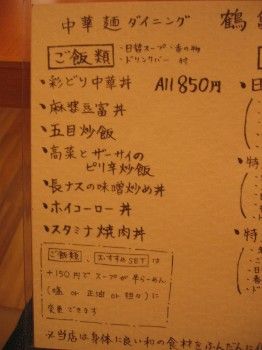 中華麺ダイニング 鶴
ご飯類 ・日替スープ・香の物
・ドリンクバー 付
・彩どり中華丼 All 850円
・麻婆豆腐丼
・五目炒飯
・高菜とザーサイの
ピリ辛炒飯
・長ナスの味噌炒め丼
・ホイコーロー丼
・スタミナ焼肉丼
ご飯類、おすすめSETは
+150円でスープが半らーめん
(塩 or 正油 or 担々)に
変更できます
※当店は身体に良い和の食材をふんだんに